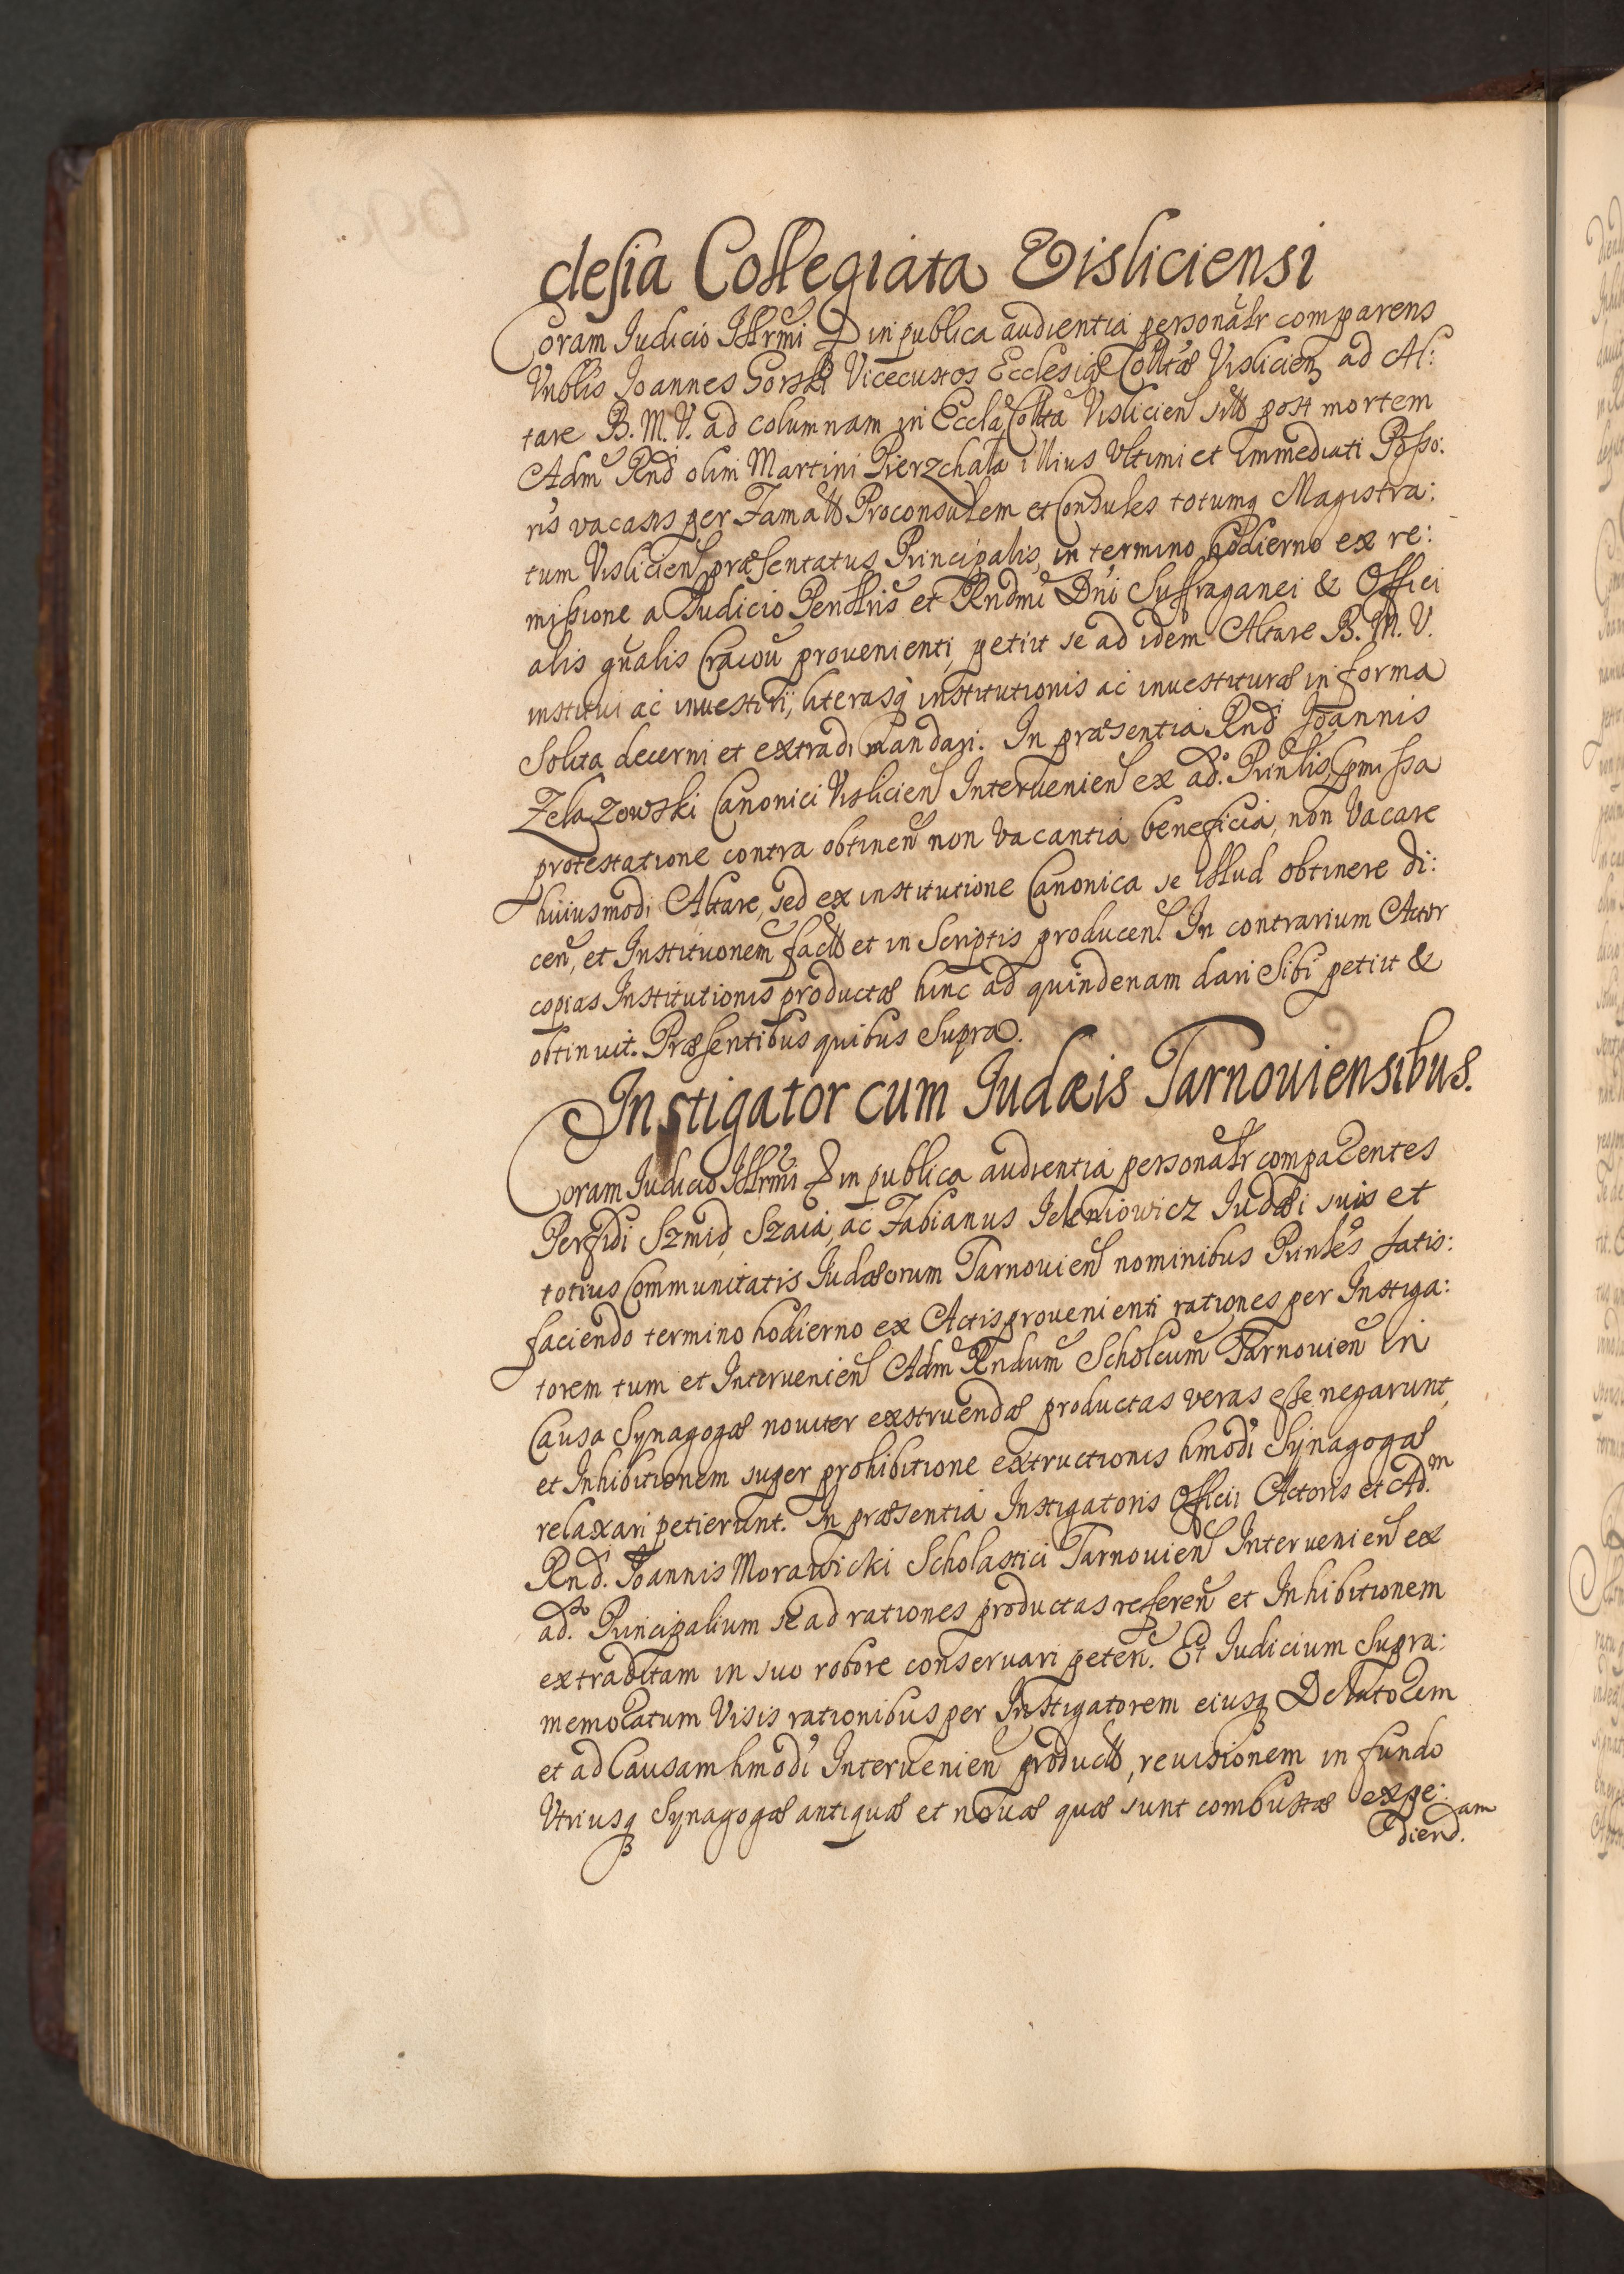 clesia Collegiata Visliciensi
Coram Judicio Illrmi & in publica audientia personalr comparens
Vnblis Joannes Gorski Vicecustos Ecclesiæ Colltæ Vislicien ad Al:
tare B. M. V. ad columnam in Eccla Collta Vislicien sito post mortem
Adm Rnd olim Martini Pierzchala illius Vltimi et Immediati Posso:
ris vacans per Famatos Proconsulem et Consules totumq Magistra:
tum Vislicien præsentatus Principalis, in termino hodierno ex re:
missione a Judicio Penslris et Rndmi Dni Suffraganei & Offici
alis gnalis Cracou prouenienti, petiit se ad idem Altare B. M. V.
institui ac inuestiri, literasq institutionis ac inuestituræ in forma
Solita decerni et extradi mandari. In præsentia Rnd Joannis
Zelazowski Canonici Vislicien Intervenien ex ad: Prinlis, Cpmissa
protestatione contra obtinen non Vacantia beneficia, non Vacare
huiusmodi Altare, sed ex institutione Canonica se illud obtinere di:
cen, et Institutionem facto et in Scriptis producen. In contrarium Actor
copias Institutionis productæ hinc ad quindenam dari Sibi petiit &
obtinuit. Præsentibus quibus Supra.
Instigator cum Judæis Tarnouiensibus.
Coram Judicio Illrmi & in publica audientia personalr comparentes
Perfidi Szmid, Szaia, ac Fabianus Jeleniowicz Judæi suis et
totius Communitatis Judæorum Tarnouien nominibus Prinles satis:
faciendo termino hodierno ex Actis prouenienti rationes per Instiga:
torem tum et Intervenien Adm Rndum Scholcum Tarnouien in
Causa Synagogæ nouiter exstruendæ productas veras esse negarunt,
et Inhibitionem super prohibitione extructionis hmodi Synagogæ
relaxari petierunt. In præsentia Instigatoris Officii Actoris et Ad.m
Rnd. Joannis Morawicki Scholastici Tarnouien Intervenien ex
ado. Principalium se ad rationes productas referen et Inhibitionem
extraditam in suo robore conseruari peten. Et Judicium Supra:
memoratum Visis rationibus per Instigatorem eiusq Delatorem
et ad Causam hmodi Intervenien producto, reuisionem in fundo
Vtriusq Synagogæ antiquæ et nouæ quæ sunt combustæ expe:
diend.am